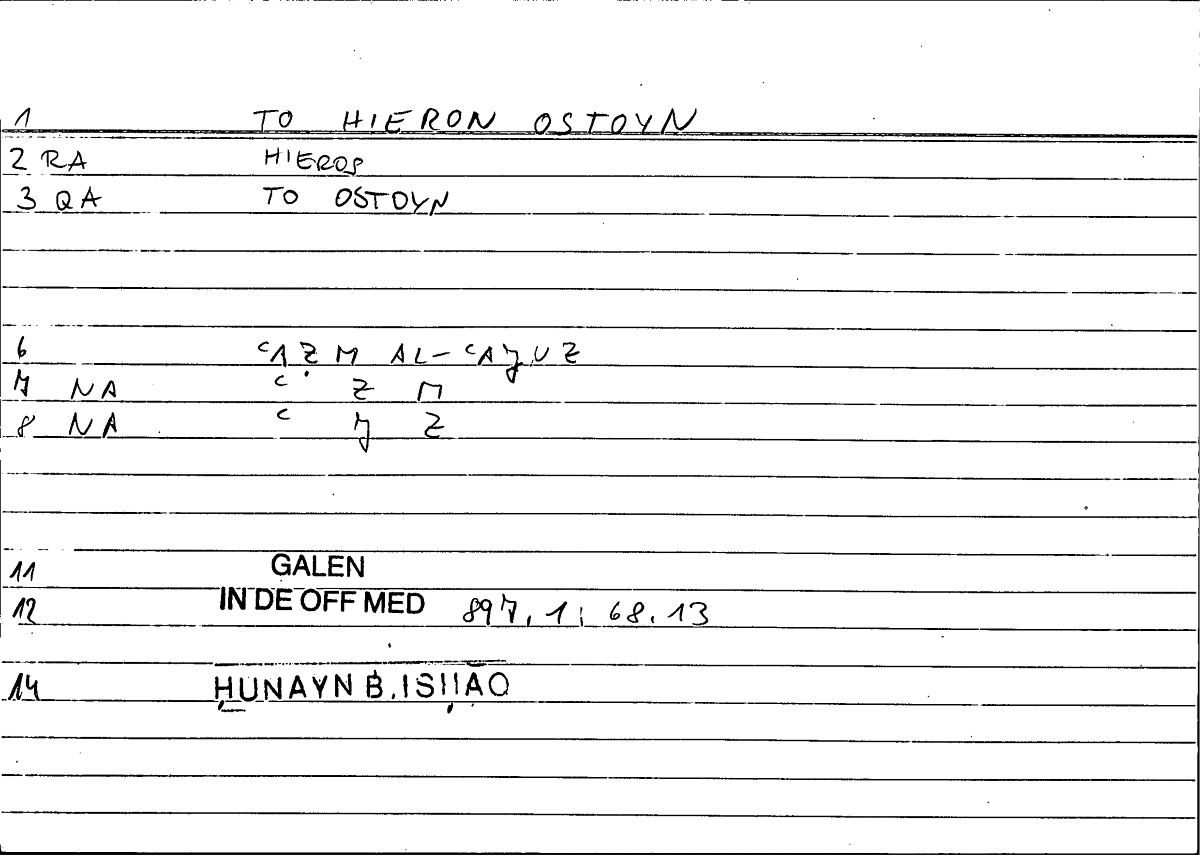 1 TO HIERON OSTOYN
2 RA HIEROS
3 QA TO OSTOYN
6 ᶜAẒM AL-ᶜAJ̣UZ
7 NA ᶜ Ẓ M
8 NA ᶜ J Z
11 GALEN
12 IN DE OFF MED 897,1; 68.13
14 ḤUNAYN B. ISḤĀQ